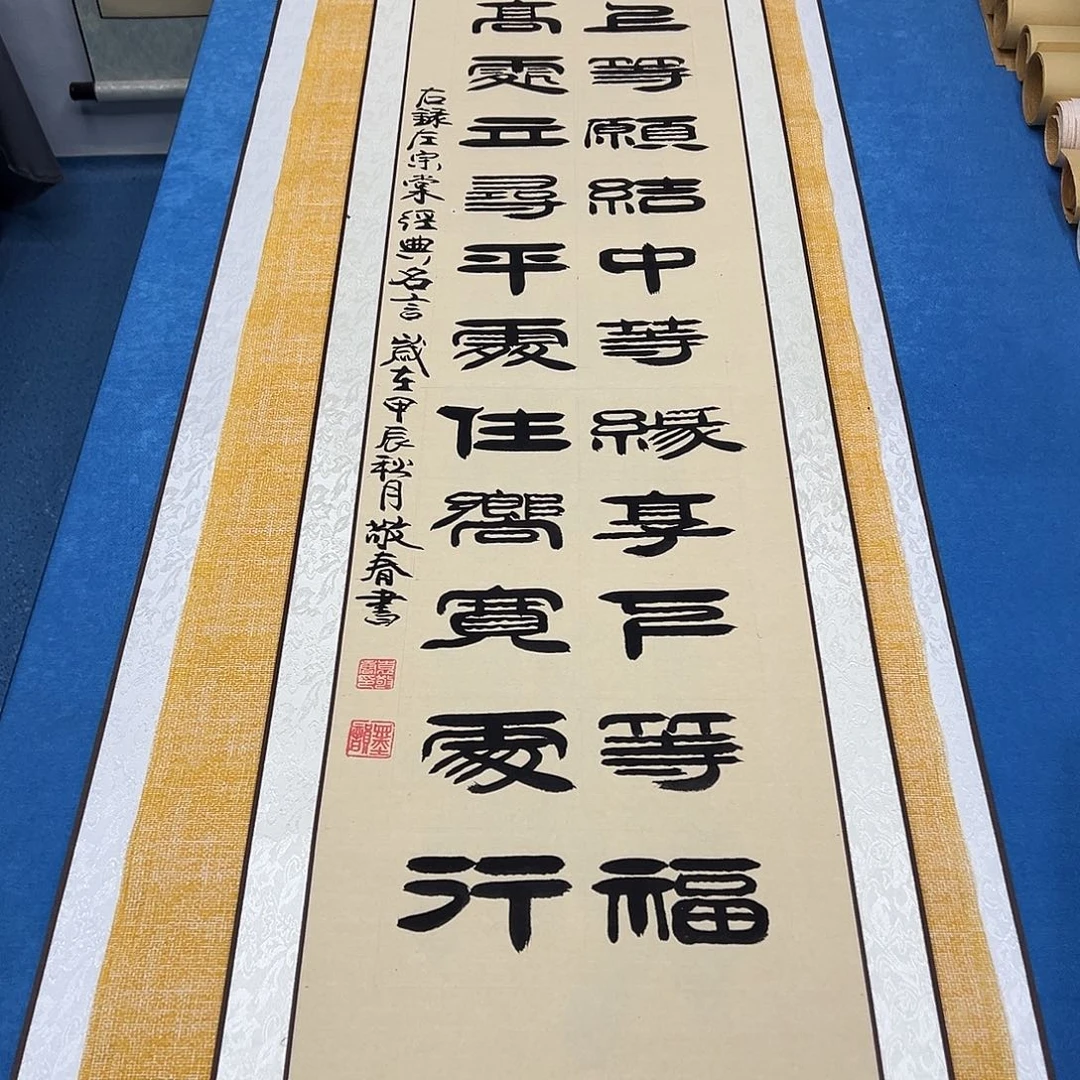 上等願結中等緣享下等福
高處立尋平處住嚮寬處行
右錄左宗棠經典名言 歲在甲辰秋月敬春書